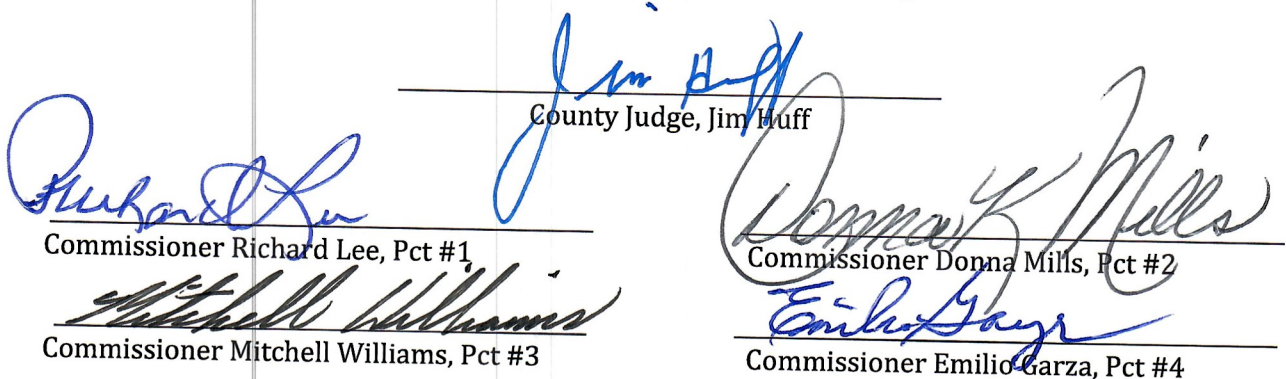 Jim Huff
County Judge, Jim Huff
Richard Lee
Commissioner Richard Lee, Pct #1
Donna K Mills
Commissioner Donna Mills, Pct #2
Mitchell Williams
Commissioner Mitchell Williams, Pct #3
Emilio Garza
Commissioner Emilio Garza, Pct #4